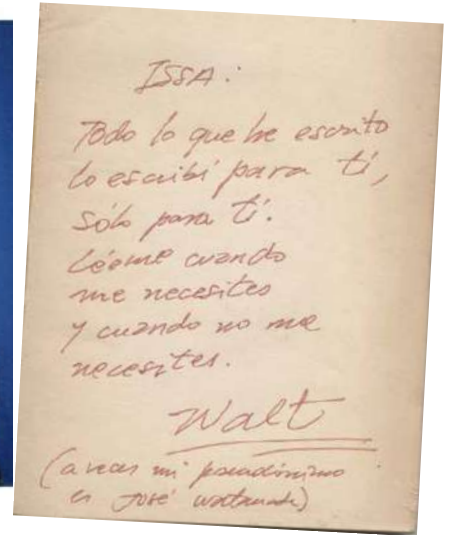 ISSA:
Todo lo que he escrito
lo escribí para tí,
sólo para tí.
Léeme cuando
me necesites
y cuando no me
necesites.
Walt
(a veces mi pseudónimo
es José Watanabe)